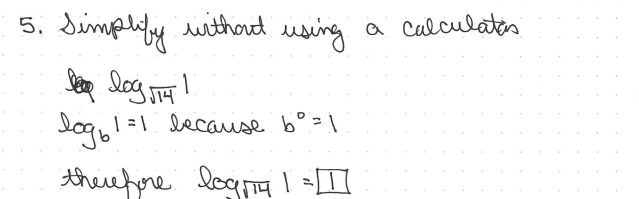 5. Simplify without using a calculator.
log √14 1
log_b 1 = 1 because b⁰ = 1
therefore log √14 1 = 1